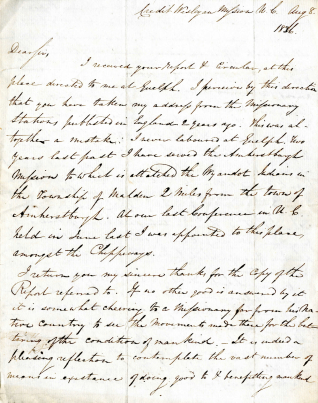 Credit Wesleyan Mission U. C. Aug 8
1836.
Dear Sir,
I received your Report & Circular, at this
place directed to me at Guelph. I perceive by this direction
that you have taken my address from the Missionary
Stations published in England 2 years ago. This was al-
together a mistake: I never laboured at Guelph. two
years last past I have served the Amherstburgh
Mission to which is attached the Wyandot Indians in
the Township of Malden 2 Miles from the town of
Amherstburgh. At our last Conference in U. C.
held in June last I was appointed to this place,
amongst the Chippeways.
I return you my sincere thanks for the Copy of the
Report referred to. If no other good is answered by it
it is somewhat cheering to a Missionary far from his Na-
tive Country to see the Movements made there for the bet-
tering of the condition of mankind. - It is indeed a
pleasing reflection to contemplate the vast number of
means in existance of doing good to & benefitting mankind